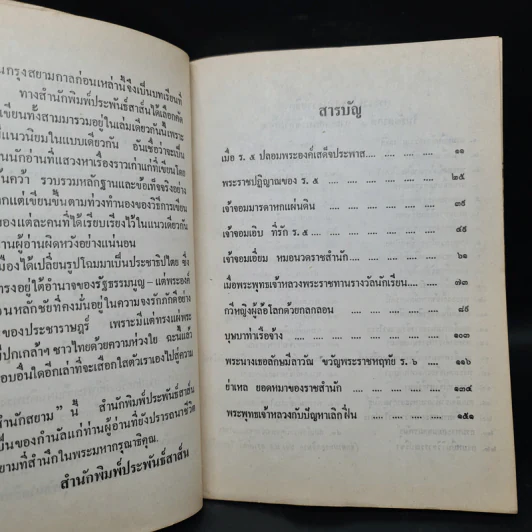 นกรุงสยามกาลก่อนเหล่านี้จึงเป็นบทเรียนที่
ทางสำนักพิมพ์ประพันธ์สาส์นได้เลือกคัด
เขียนทั้งสามมารวมอยู่ในเล่มเดียวกันนี้เพราะ
มีแนวนิยมในแบบเดียวกัน อันเชื่อว่าจะเป็น
นนักอ่านที่แสวงหาเรื่องราวเก่าแก่ที่เขียนโดย
นคว้า รวบรวมหลักฐานและข้อเท็จจริงอย่าง
กแต่เขียนขึ้นตามท่วงทำนองของวิธีการเขียน
ของแต่ละคนที่ได้เรียบเรียงไว้ในแนวเดียวกัน
านผู้อ่านผิดหวังอย่างแน่นอน
มืองได้เปลี่ยนรูปโฉมมาเป็นประชาธิปไตย ซึ่ง
ารงอยู่ใต้อำนาจของรัฐธรรมนูญ – แต่พระองค์
วนหลักชัยที่คงมั่นอยู่ในความจงรักภักดีอย่าง
ของประชาราษฎร์ เพราะมีแต่ทรงแผ่พระ
ปุกเกล้าฯ ชาวไทยด้วยความห่วงใย ฉะนี้แล้ว
อบอื่นใดอีกเล่าที่จะเลือกใสตัวเราเองไปสู่ความ
สำนักสยาม” นี้ สำนักพิมพ์ประพันธ์สาส์น
เป็นของกำนัลแก่ท่านผู้อ่านที่ยังปรารถนาชีวิต
ยามที่สำนึกในพระมหากรุณาธิคุณ.
สำนักพิมพ์ประพันธ์สาส์น
สารบัญ
เมื่อ ร. ๕ ปลอมพระองค์เสด็จประพาส .... .... .... .... ๑๑
พระราชปฏิญาณของ ร. ๕ .... .... .... .... .... ๒๕
เจ้าจอมมารดาหกแผ่นดิน .... .... .... .... .... ๓๙
เจ้าจอมเอิบ ที่รัก ร. ๕ .... .... .... .... .... ๔๕
เจ้าจอมเอี่ยม หมอนวดราชสำนัก .... .... .... .... ๖๑
เมื่อพระพุทธเจ้าหลวงพระราชทานรางวัลนักเรียน .... .... .... ๗๓
กวีหญิงผู้ล้อโลกด้วยกลกลอน .... .... .... .... ๘๙
บุษบาท่าเรือจ้าง .... .... .... .... .... ๑๐๓
พระนางเธอลักษมีลาวัณ ขวัญพระราชหฤทัย ร. ๖ .... .... .... ๑๑๖
ย่าเหล ยอดหมาของราชสำนัก .... .... .... .... ๑๓๔
พระพุทธเจ้าหลวงกับปัญหาเลิกฝิ่น .... .... .... .... ๑๕๑